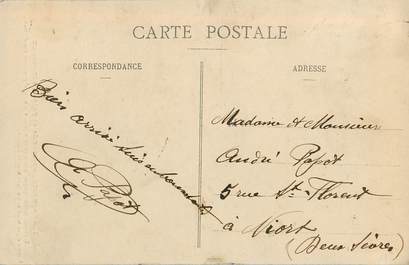 CARTE POSTALE
CORRESPONDANCE
ADRESSE
Bien arrivé
Papot
Madame et Monsieur
André Papot
5 rue St-Florent
à Niort
(Deux Sèvres)